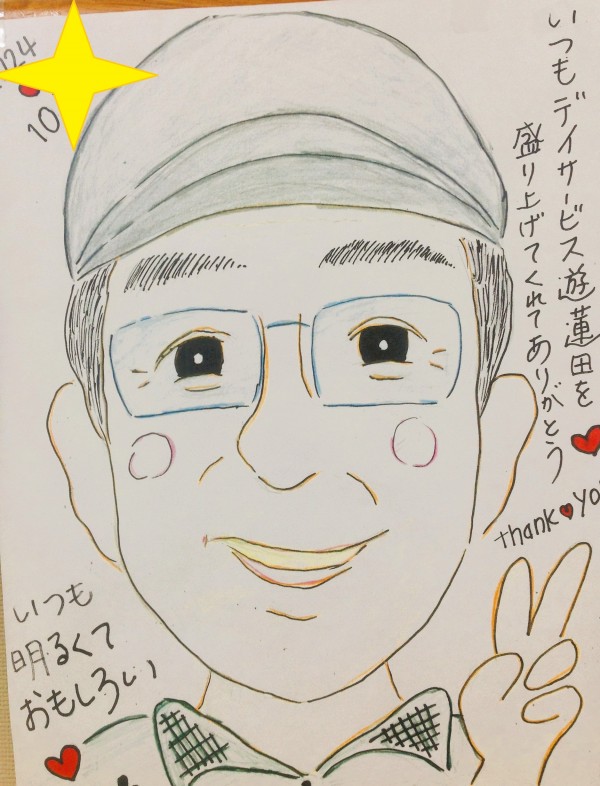 いつもデイサービス遊蓮田を
盛り上げてくれてありがとう
thank
いつも
明るくて
おもしろい
10